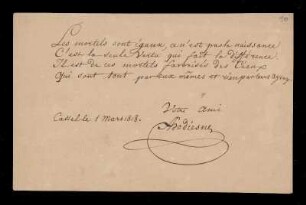 Les mortels sont égaux, ce n'est pas la naissance
C'est la seule Vertu qui fait la différence.
Il est de ces mortels favorisés des Cieux
Qui sont tout par eux mêmes et rien par leurs ayeux
Votre ami
Casselble 1 Mars 181